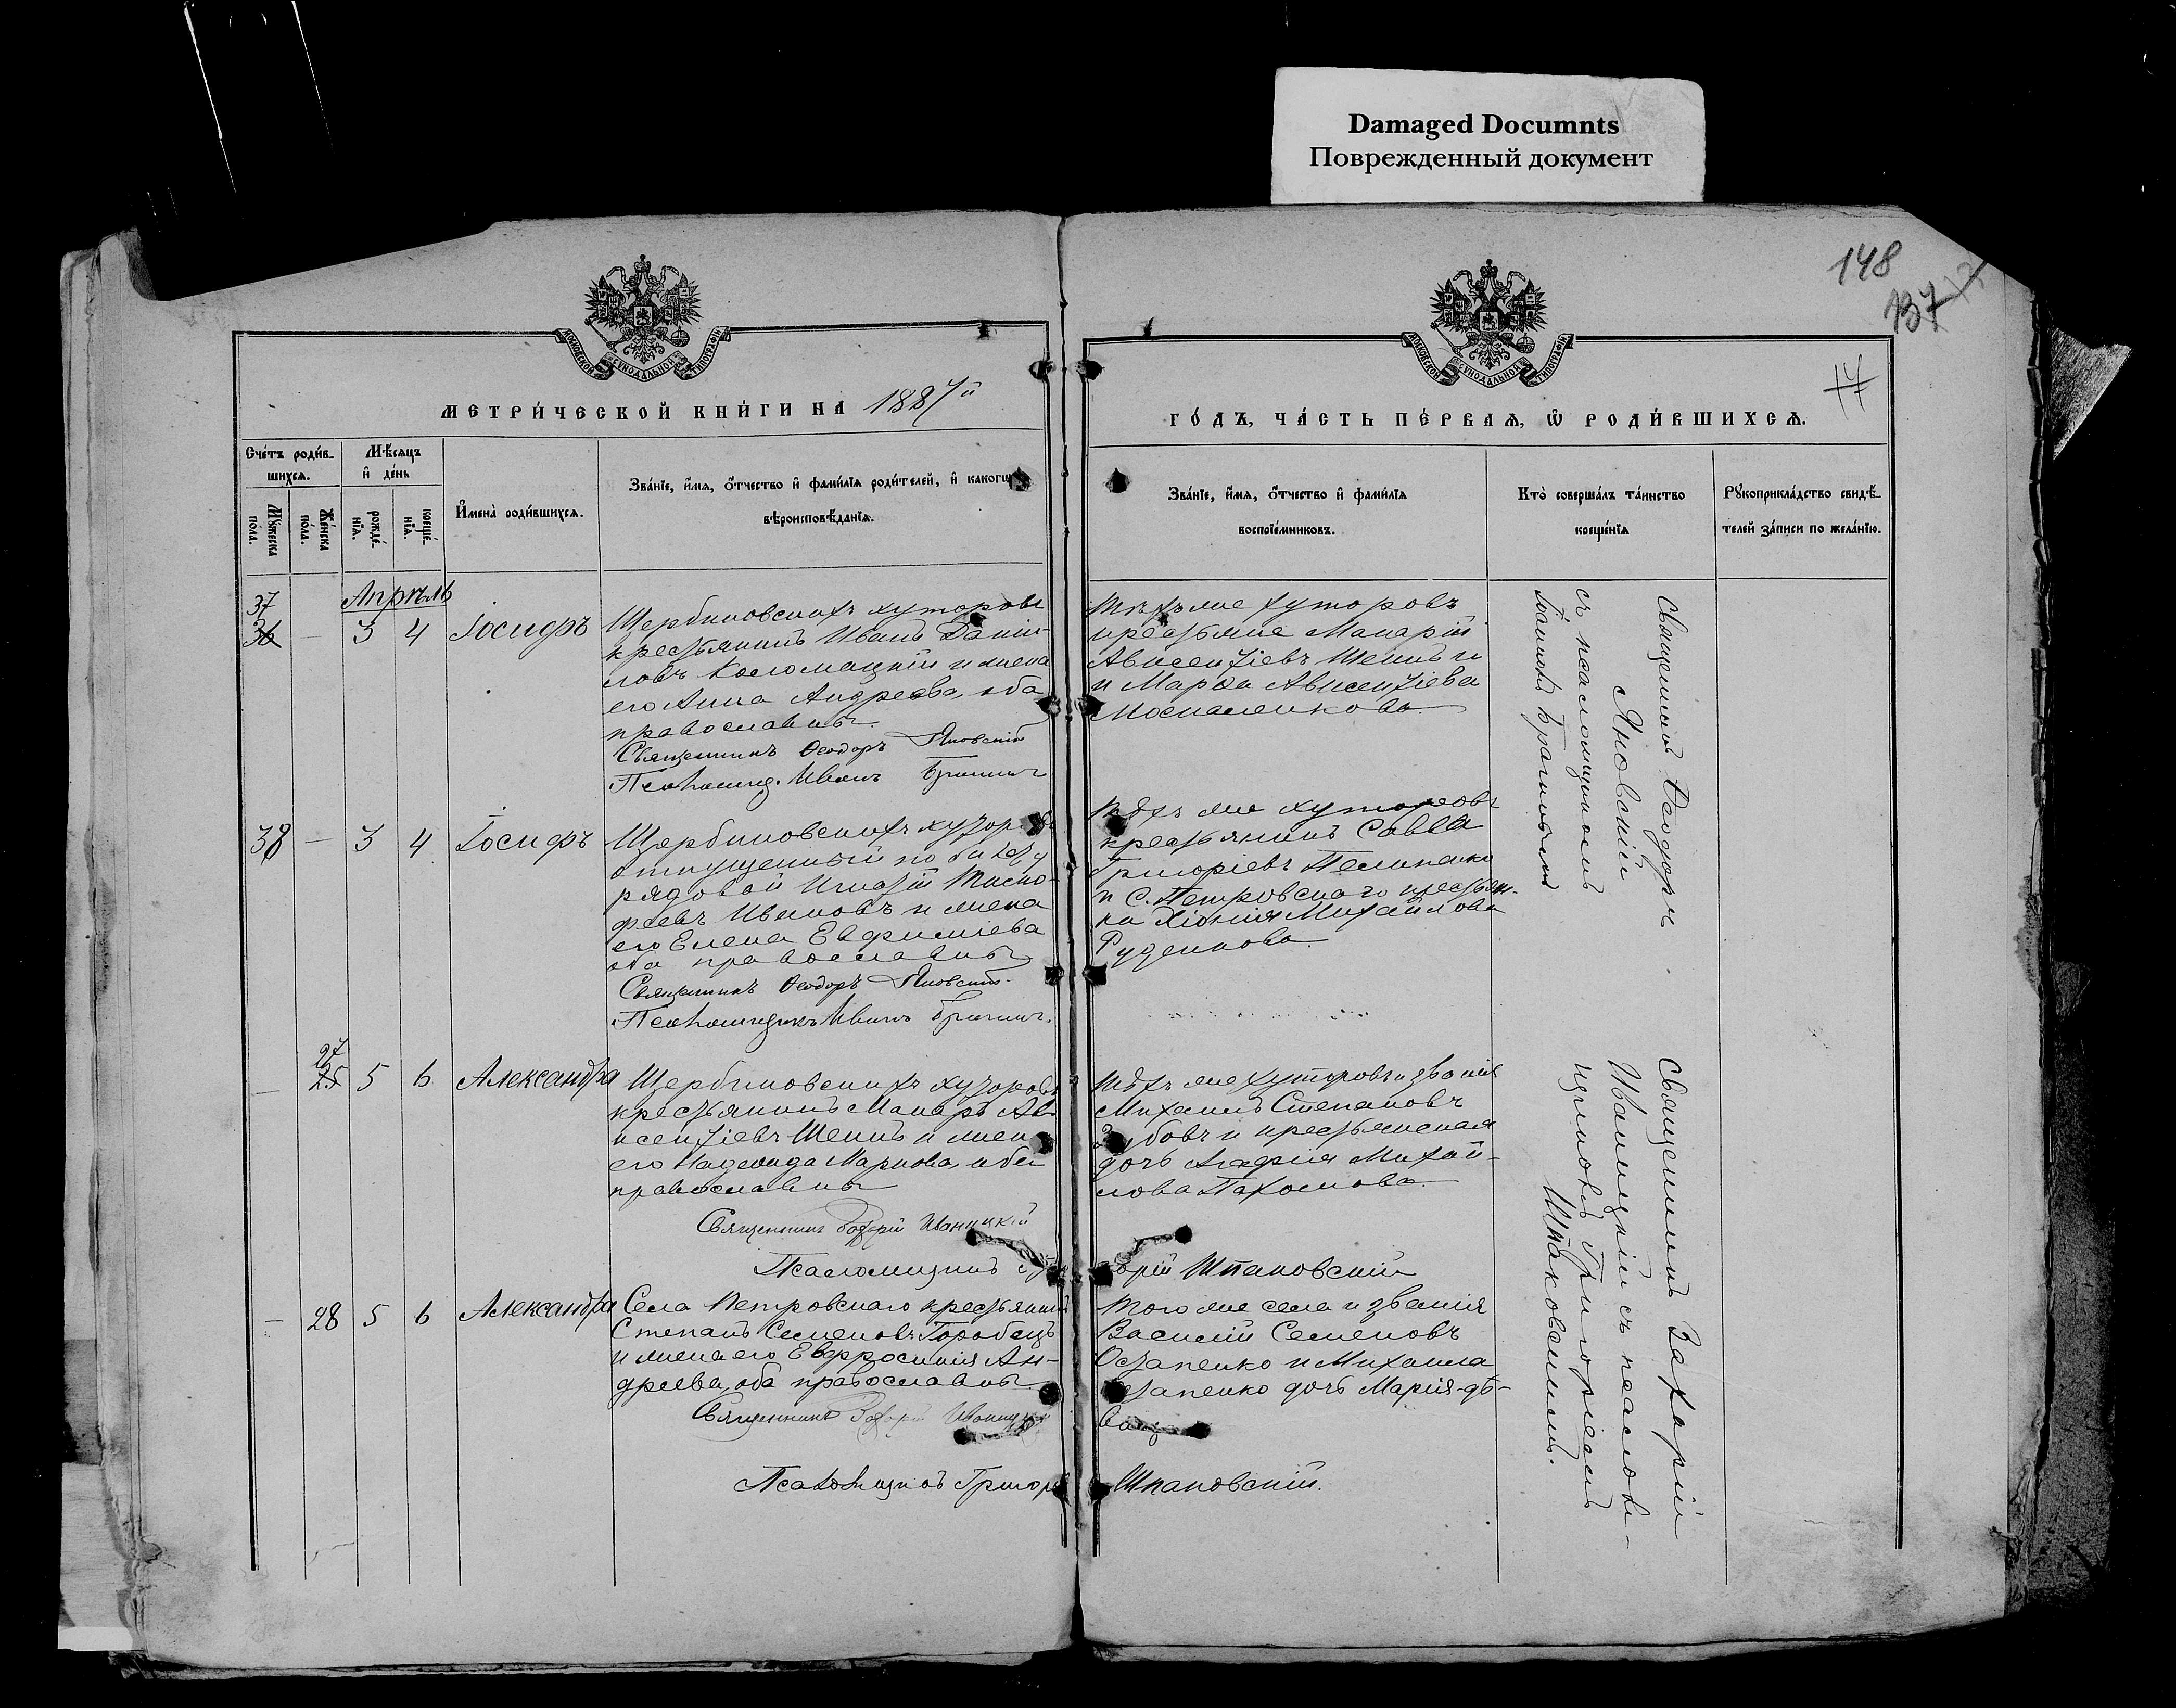 Damaged Documnts
Поврежденный документ
148
137
14
МОСКОВСКОЙ СУНОДАЛЬНОЙ ТИПОГРАФІИ
МОСКОВСКОЙ СУНОДАЛЬНОЙ ТИПОГРАФІИ
МЕТРИ́ЧЕСКОЙ КНИ́ГИ НА 1887й
ГО́ДЪ, ЧА́СТЬ ПЕ́РВАѦ, Ѡ РОДИ́ВШИХСѦ.
Счётъ роди́в-
шихсѧ.
Мѣ́сѧцъ
и҆ де́нь
Мꙋ́жеска по́ла.
Же́нска по́ла.
рожде́-
нїѧ.
креще́-
нїѧ.
И҆мена̀ роди́вшихсѧ.
Зва́нїе, и҆́мѧ, ѻ҆́тчество и҆ фами́лїѧ роди́телей, и҆ како́гѡ
вѣроисповѣ́данїѧ.
Зва́нїе, и҆́мѧ, ѻ҆́тчество и҆ фами́лїѧ
воспрїе́мниковъ.
Кто̀ соверша́лъ та́инство
креще́нїѧ
Рꙋкоприкла́дство свидѣ́-
телей за́писи по жела́нїю.
Апрѣль
37
36 — 3 4 Іосифъ
Щербиновскихъ хуторовъ
крестьянинъ Иванъ Даніи-
ловъ Коломацкій и жена
его Анна Андреева, оба
православны.
Священникъ Ѳеодоръ Яновскій
Псаломщ. Иванъ
Тѣхъ же хуторовъ
крестьяне Макарій
Авксентіевъ Шеинъ и
и Марѳа Авксентіева
Москаленкова.
Священникъ Ѳеодоръ
Яновскій
съ псаломщикомъ
Іоанномъ
38 — 3 4 Іосифъ
Щербиновскихъ хуторовъ
отпущенный по билету
рядовой Игнатій Тимо-
феевъ Ивановъ и жена
его Елена Евфиміева
оба православны
Священникъ Ѳеодоръ Яновскій.
Псаломщикъ Иванъ
Тѣхъ же хуторовъ
крестьянинъ Савва
Григоріевъ Пелипенко
и С. Петровскаго крестьян-
ка Хіонія Михайлова
Руденкова.
27
— 25 5 6 Александра
Щербиновскихъ хуторовъ
крестьянинъ Макаръ Ав-
ксентіевъ Шеинъ и жена
его Надежда Маркова, оба
православны
Священникъ Захарій Иваницкій
Псаломщикъ Григорій Шпаковскій
Тѣхъ же хуторовъ и званія
Михаилъ Степановъ
Зубовъ и крестьянская
дочь Агафія Михай-
лова Пахомова.
Священникъ Захарій
Иваницкій съ псаломщикомъ
Григоріемъ
Шпаковскимъ.
— 28 5 6 Александра
Села Петровскаго крестьянинъ
Степанъ Семеновъ Горобецъ
и жена его Евфросинія Ан-
дреева, оба православны.
Священникъ Захарій Иваницкій
Псаломщикъ Григорій Шпаковскій.
Того же села и званія
Василій Семеновъ
Остапенко и Михаила
Остапенко дочь Марія-дѣ-
вица